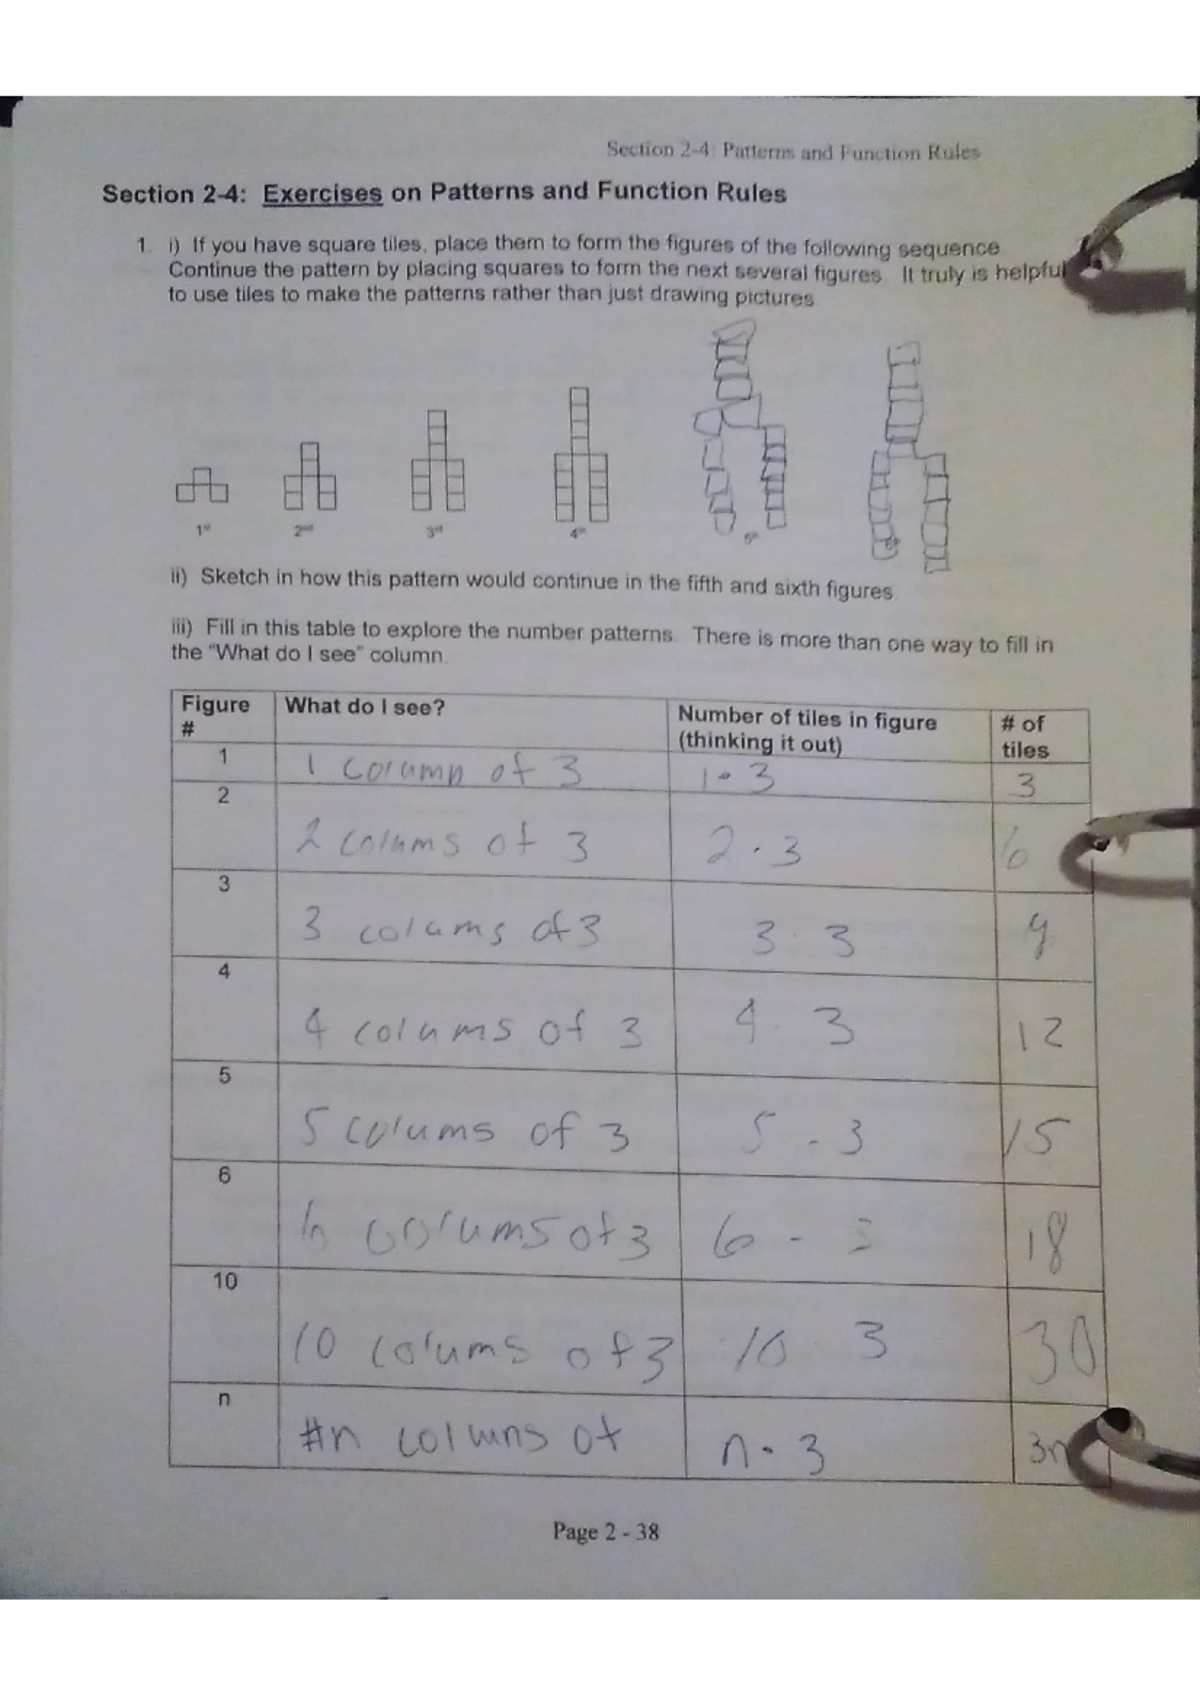 Section 2-4: Patterns and Function Rules
Section 2-4: Exercises on Patterns and Function Rules
1. i) If you have square tiles, place them to form the figures of the following sequence.
Continue the pattern by placing squares to form the next several figures. It truly is helpful
to use tiles to make the patterns rather than just drawing pictures.
1st 2nd 3rd 4th 5th
ii) Sketch in how this pattern would continue in the fifth and sixth figures.
iii) Fill in this table to explore the number patterns. There is more than one way to fill in
the "What do I see" column.
Figure # What do I see? Number of tiles in figure (thinking it out) # of tiles
1 1 column of 3 1 • 3 3
2 2 colums of 3 2 · 3 6
3 3 colums of 3 3 · 3 9
4 4 colums of 3 4 · 3 12
5 5 colums of 3 5 · 3 15
6 colums of 3 6 · 3 18
10 10 colums of 3 10 · 3 30
n #n columns of n • 3 3n
Page 2 - 38